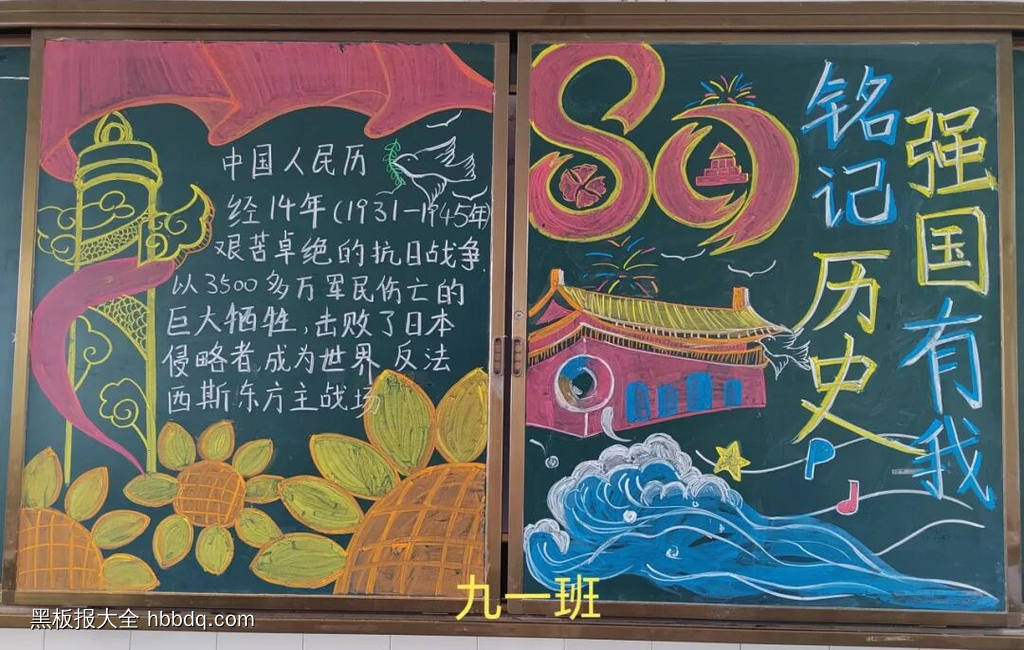 中国人民历
经14年(1931—1945年)
艰苦卓绝的抗日战争
以3500多万军民伤亡的
巨大牺牲,击败了日本
侵略者成为世界反法
西斯东方主战场
80
铭记历史
强国有我
九一班
黑板报大全 hbbdq.com